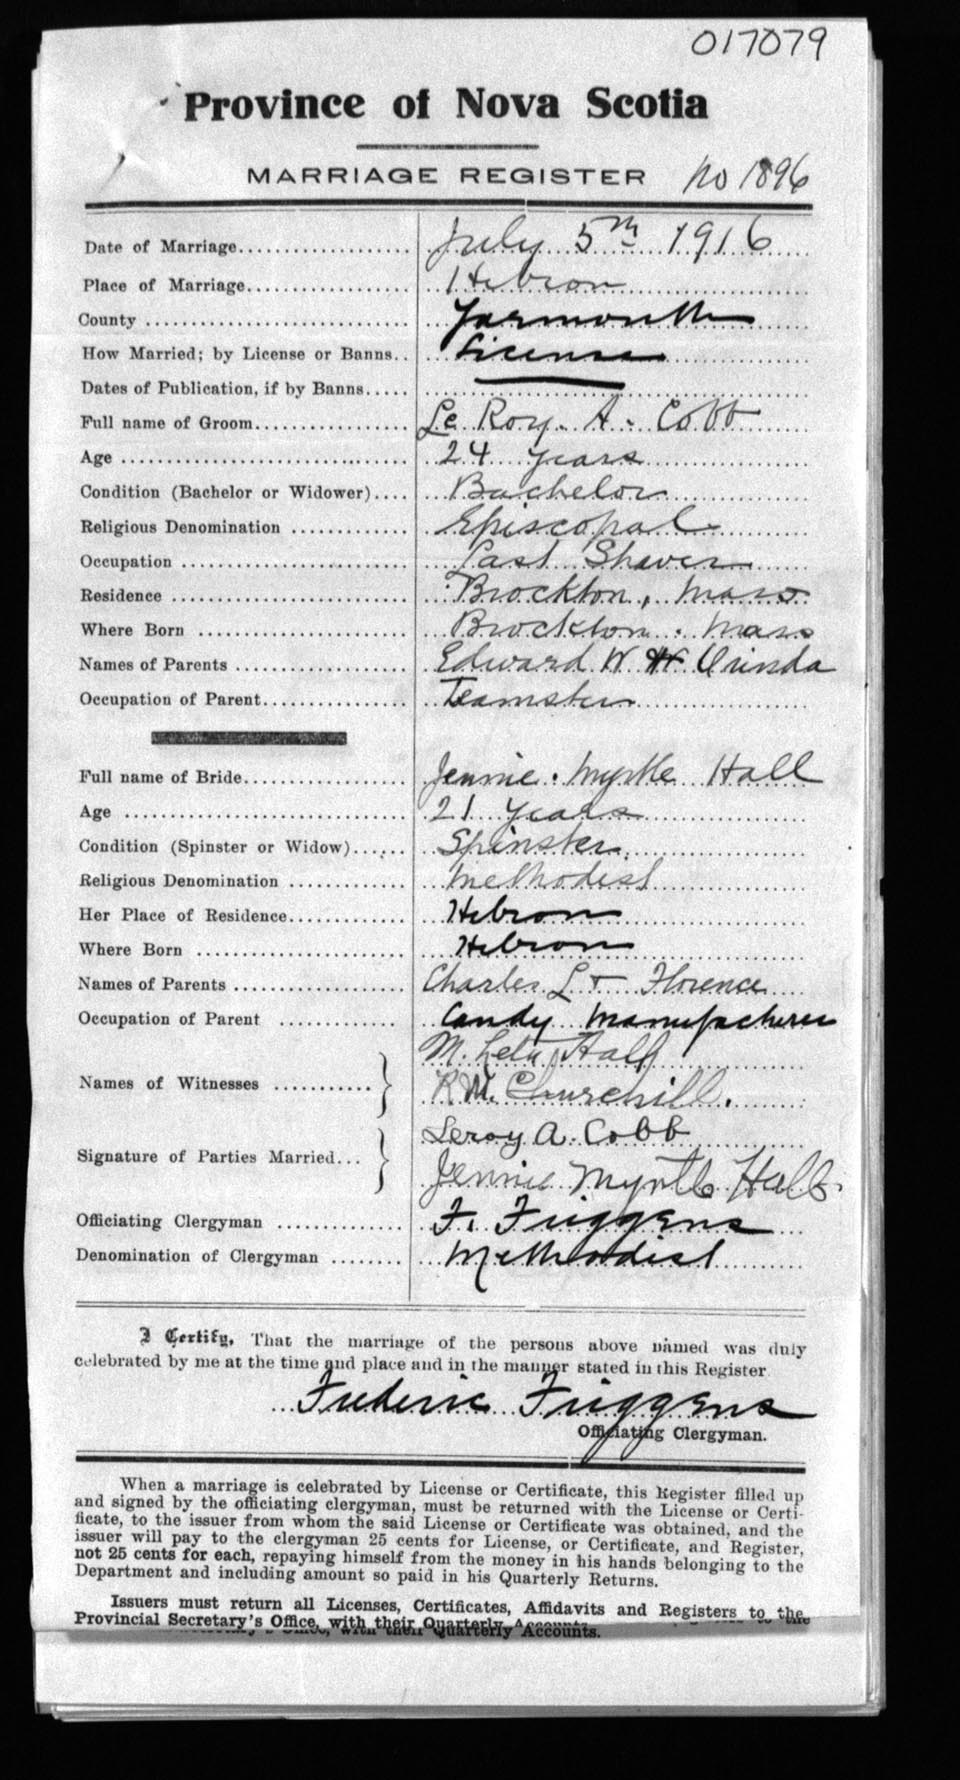 017079
Province of Nova Scotia
MARRIAGE REGISTER No 1896
Date of Marriage.................... July 5th 1916
Place of Marriage................... Hebron
County .............................. Yarmouth
How Married; by License or Banns.. License
Dates of Publication, if by Banns.....
Full name of Groom.................. Le Roy. A. Cobb
Age ................................. 24 years
Condition (Bachelor or Widower).... Bachelor
Religious Denomination ............. Episcopal
Occupation .......................... Last Shaver
Residence ........................... Brockton, Mass
Where Born ......................... Brockton. Mass
Names of Parents .................... Edward W Orinda
Occupation of Parent................. Teamster
Full name of Bride................... Jennie. Myrtle Hall
Age ................................. 21 years
Condition (Spinster or Widow)...... Spinster
Religious Denomination ............. Methodist
Her Place of Residence.............. Hebron
Where Born ......................... Hebron
Names of Parents .................... Charles L + Florence
Occupation of Parent ............... Candy Manufacturer
M. Hall
Names of Witnesses ........... R.M. Churchill.
Leroy A. Cobb
Signature of Parties Married...
Jennie Myrtle Hall
Officiating Clergyman ............... F. Friggens
Denomination of Clergyman ......... Methodist
I Certify, That the marriage of the persons above named was duly
celebrated by me at the time and place and in the manner stated in this Register
Frederic Friggens
Officiating Clergyman.
When a marriage is celebrated by License or Certificate, this Register filled up
and signed by the officiating clergyman, must be returned with the License or Certi-
ficate, to the issuer from whom the said License or Certificate was obtained, and the
issuer will pay to the clergyman 25 cents for License, or Certificate, and Register,
not 25 cents for each, repaying himself from the money in his hands belonging to the
Department and including amount so paid in his Quarterly Returns.
Issuers must return all Licenses, Certificates, Affidavits and Registers to the
Provincial Secretary's Office, with their Quarterly Accounts.